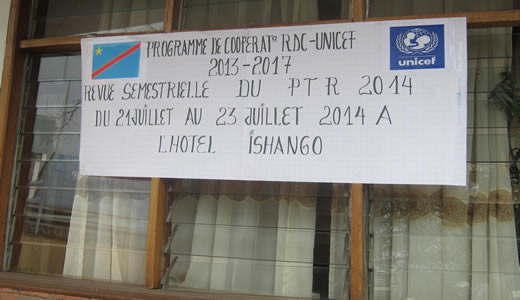 PROGRAMME DE COOPÉRAT° RDC-UNICEF
2013-2017
REVUE SEMESTRIELLE DU PTR 2014
DU 21 JUILLET AU 23 JUILLET 2014 A
L'HOTEL ISHANGO
unicef